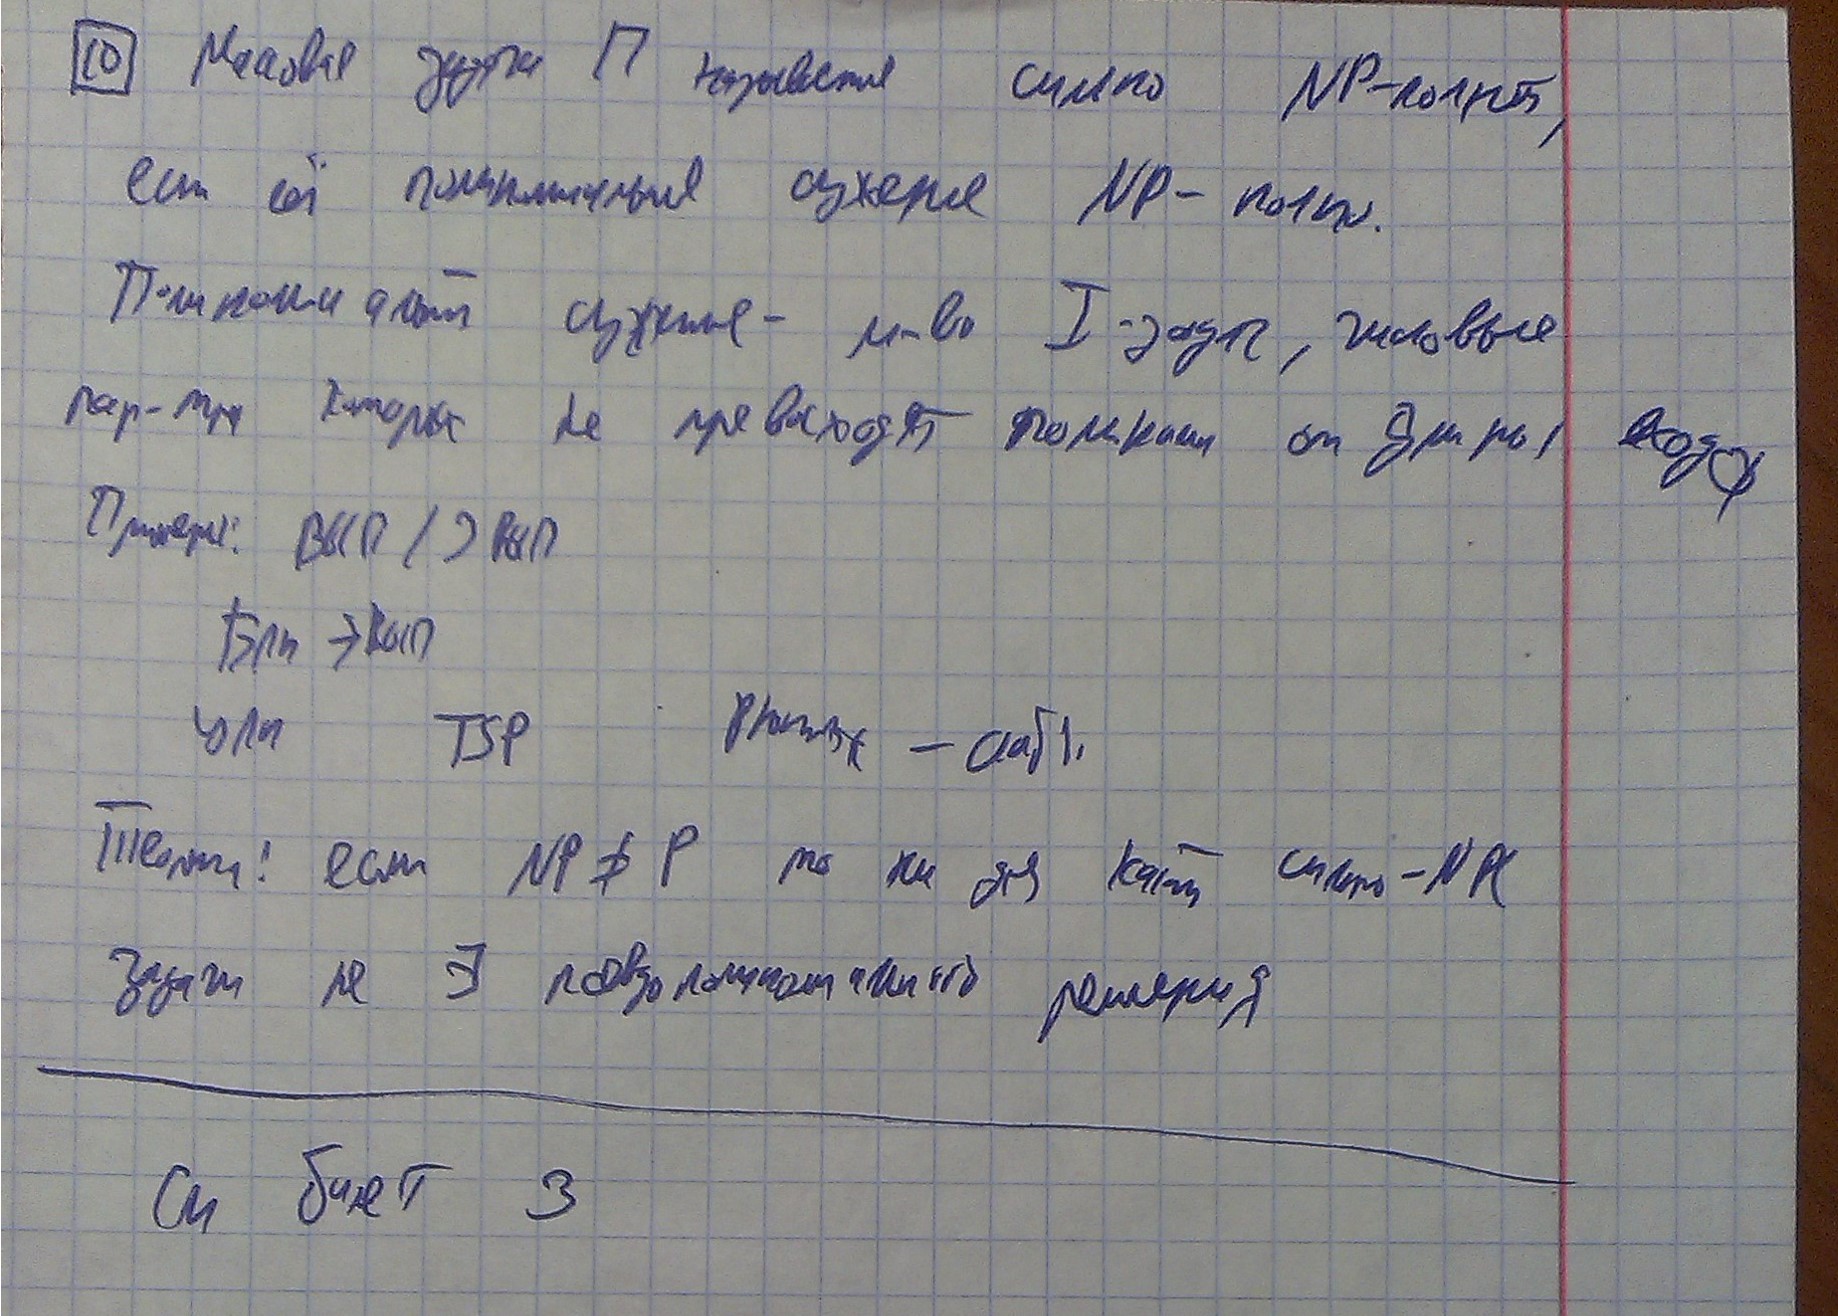 10 Массовая задача П называется сильно NP-полной,
если её полиномиальное сужение NP-полно.
Полиномиальной сужение - мн-во I задач, числовые
пар-тры которых не превосходят полином от длины входа
Пример: ВЫП / 3 ВЫП
ЦЛП TSP рюкзак - слаб.
Теорема: если NP ≠ P то ни для какой сильно-NPC
задачи не ∃ псевдополиномиального решения
См билет 3